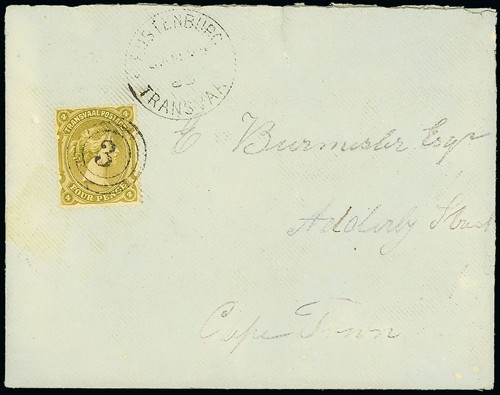 RUSTENBURG
TRANSVAAL
TRANSVAAL POSTAGE
3
FOUR PENCE
E Burmester Esqr
Adderly Street
Cape Town